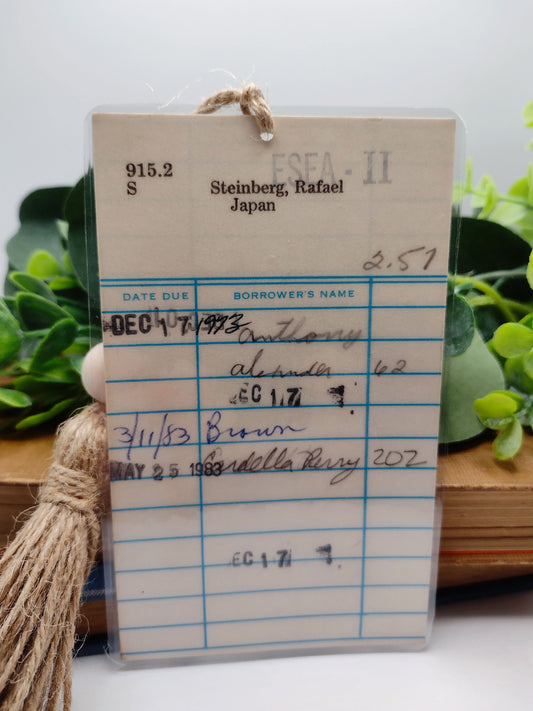 ESEA - II
915.2
S
Steinberg, Rafael
Japan
2.57
DATE DUE BORROWER'S NAME
DEC 17 1973 Anthony
Alexander 62
EC 17
3/11/83 Brown
MAY 25 1983 Cordella Perry 202
EC 17